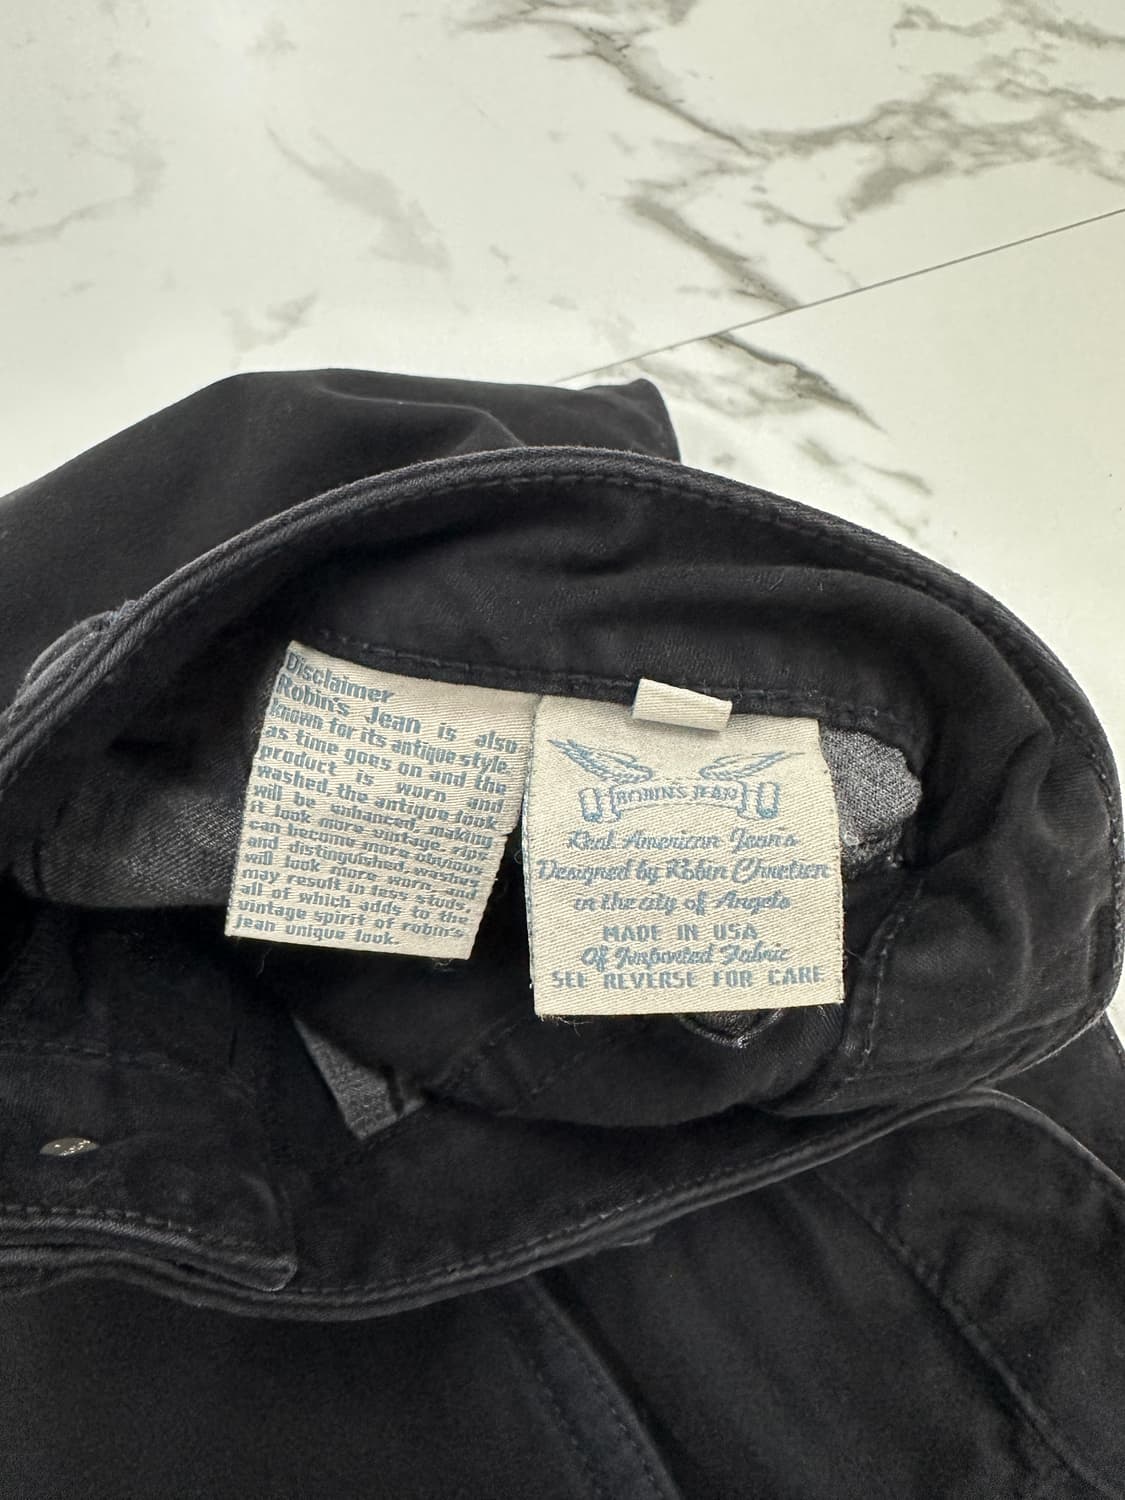 Disclaimer
Robin's Jean is also
known for its antique style.
as time goes on and the
product is worn and
washed, the antique look
will be enhanced, making
it look more vintage. rips
can become more obvious
and distinguished, washes
will look more worn, and
may result in less studs,
all of which adds to the
vintage spirit of robin's
jean unique look.
ROBIN'S JEAN
Real American Jean's
Designed by Robin Chretien
in the city of Angels
MADE IN USA
Of Imported Fabric
SEE REVERSE FOR CARE